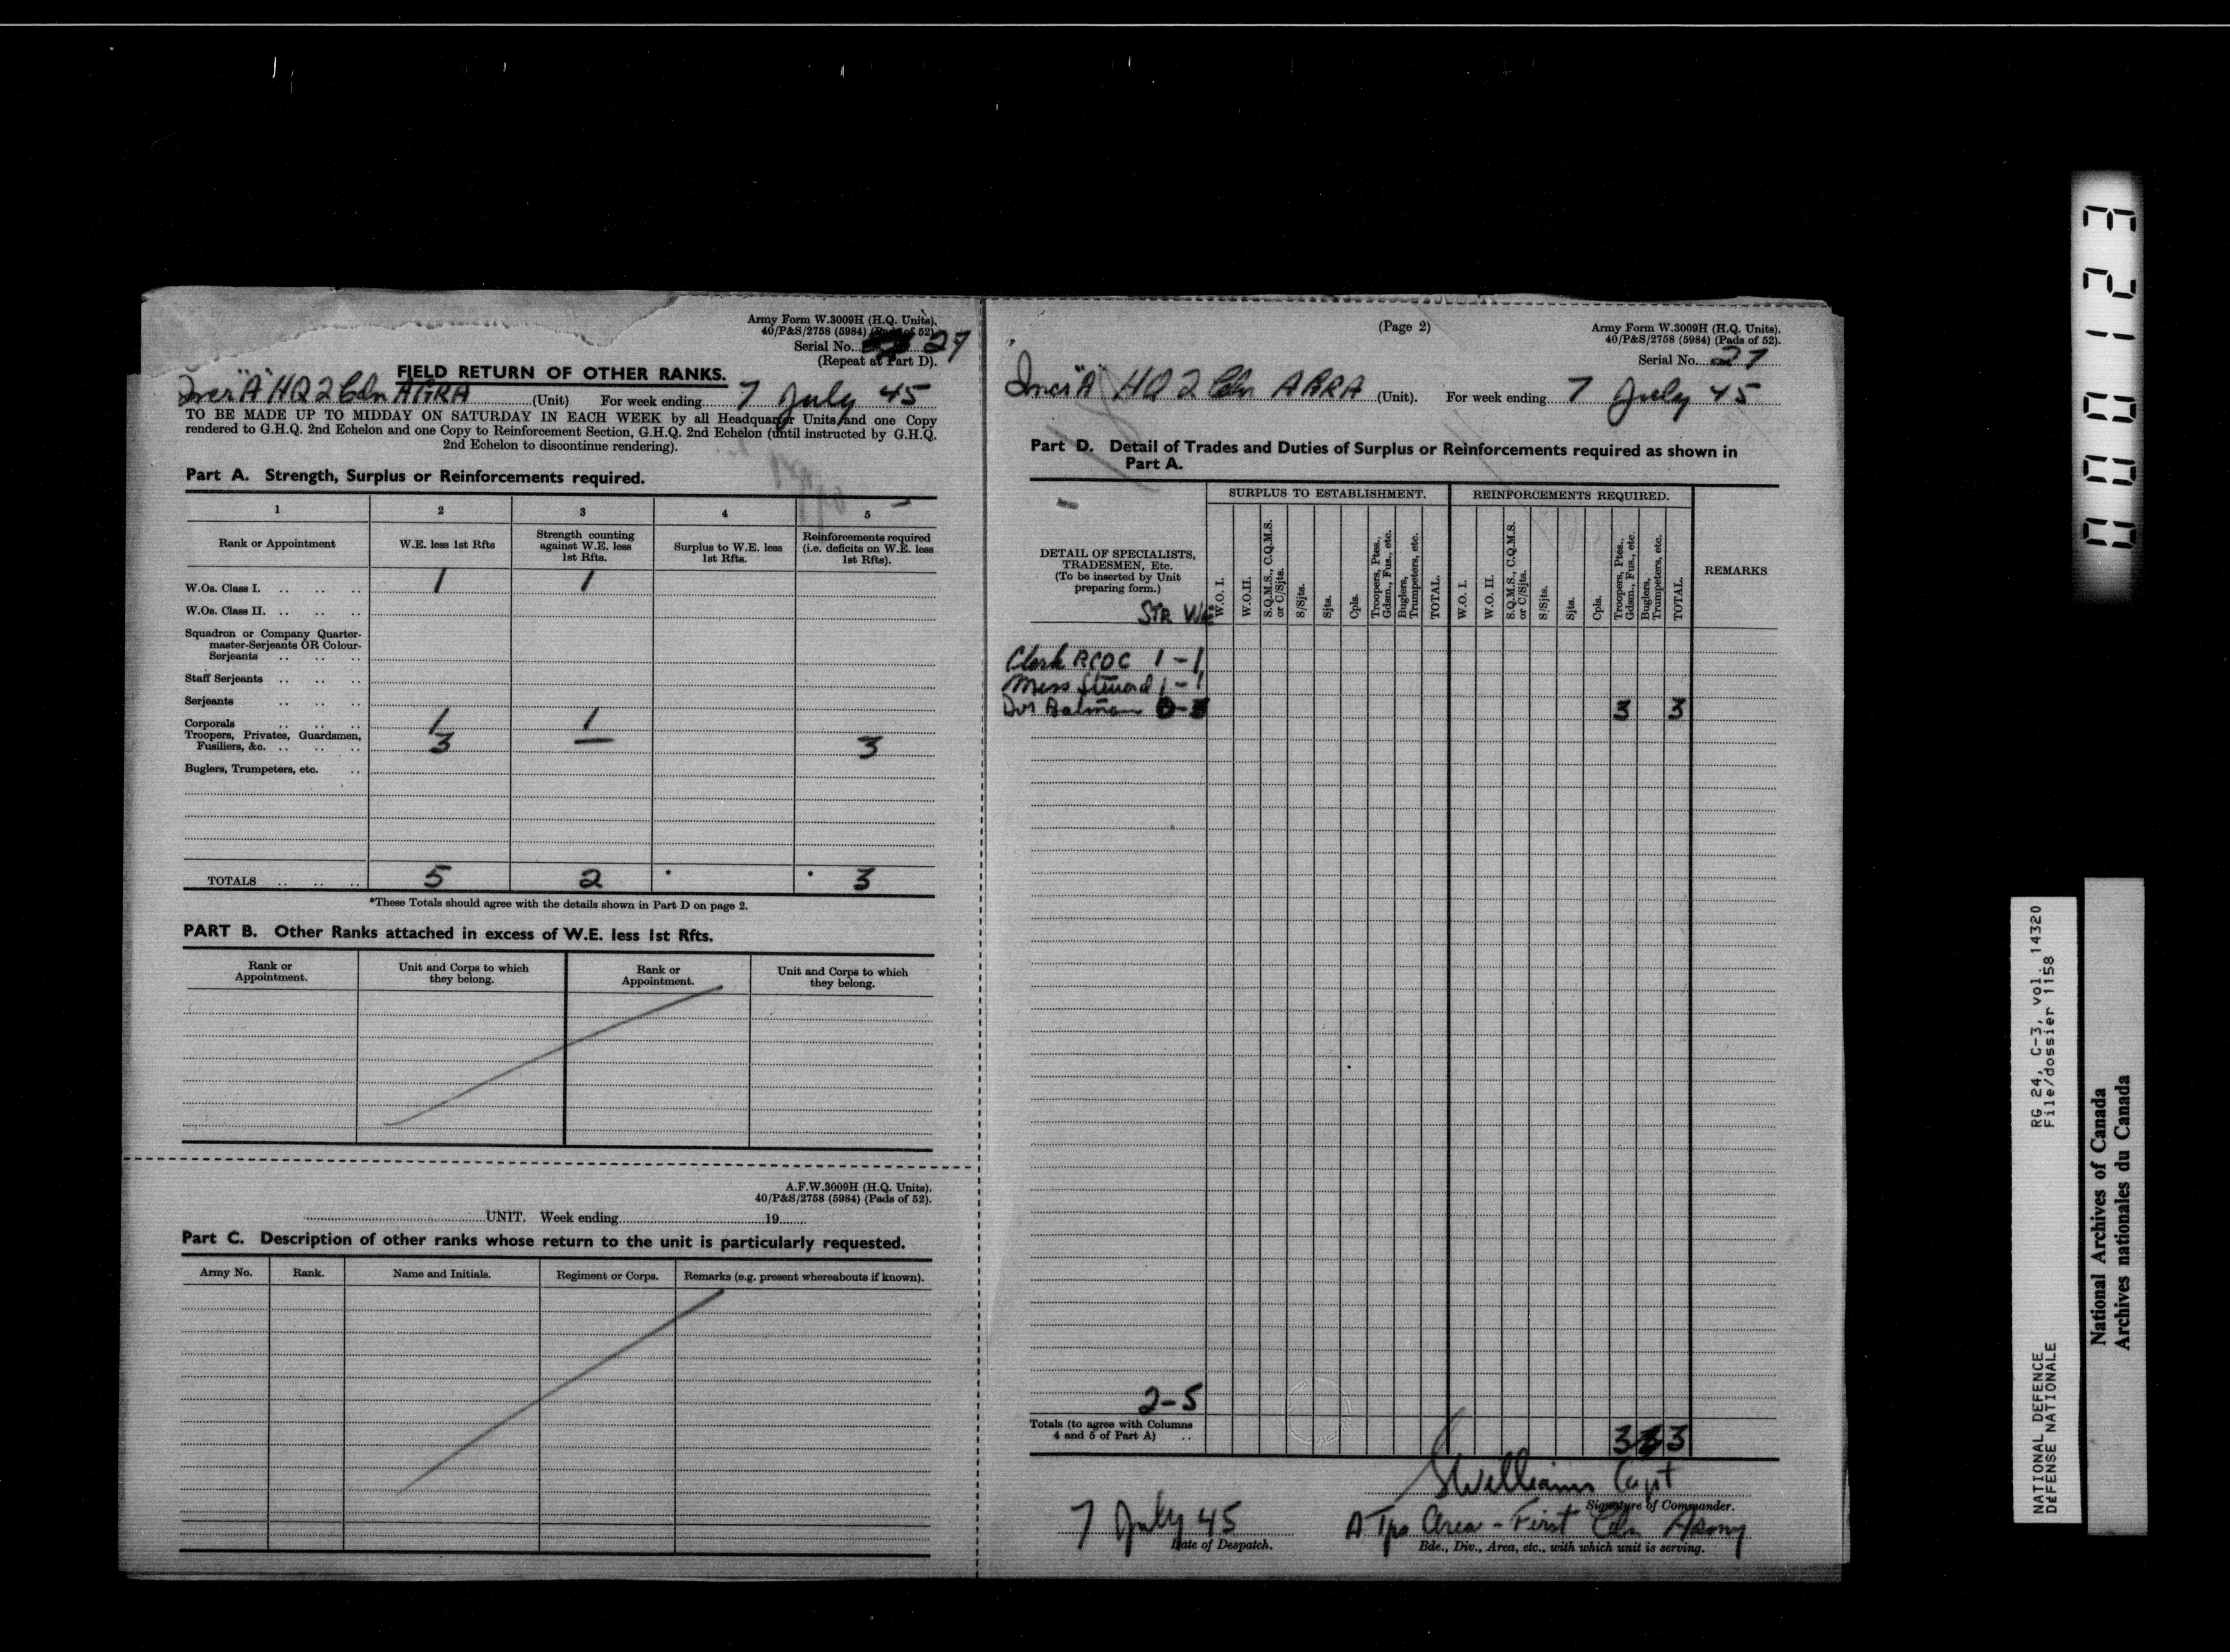 Army Form W.3009H (H.Q. Units).
40/P&S/2758 (5984) (Pads of 52).
Serial No. 27
(Repeat at Part D).
FIELD RETURN OF OTHER RANKS.
"A" HQ 2 Cdn AGRA (Unit) For week ending 7 July 45
TO BE MADE UP TO MIDDAY ON SATURDAY IN EACH WEEK by all Headquarter Units and one Copy
rendered to G.H.Q. 2nd Echelon and one Copy to Reinforcement Section, G.H.Q. 2nd Echelon (until instructed by G.H.Q.
2nd Echelon to discontinue rendering).
Part A. Strength, Surplus or Reinforcements required.
1 2 3 4 5
Rank or Appointment W.E. less 1st Rfts Strength counting against W.E. less 1st Rfts. Surplus to W.E. less 1st Rfts. Reinforcements required (i.e. deficits on W.E. less 1st Rfts).
W.Os. Class I. .. .. .. 1 1
W.Os. Class II. .. .. ..
Squadron or Company Quarter-
master-Serjeants OR Colour-
Serjeants .. .. ..
Staff Serjeants .. .. ..
Serjeants .. .. ..
Corporals .. .. .. 1 1
Troopers, Privates, Guardsmen,
Fusiliers, &c. .. .. .. 3 — 3
Buglers, Trumpeters, etc. ..
TOTALS .. .. .. 5 2 * * 3
*These Totals should agree with the details shown in Part D on page 2.
PART B. Other Ranks attached in excess of W.E. less 1st Rfts.
Rank or Appointment. Unit and Corps to which they belong. Rank or Appointment. Unit and Corps to which they belong.
A.F.W.3009H (H.Q. Units).
40/P&S/2758 (5984) (Pads of 52).
UNIT. Week ending 19
Part C. Description of other ranks whose return to the unit is particularly requested.
Army No. Rank. Name and Initials. Regiment or Corps. Remarks (e.g. present whereabouts if known).
(Page 2)
Army Form W.3009H (H.Q. Units).
40/P&S/2758 (5984) (Pads of 52).
Serial No. 27
"A" HQ 2 Cdn AGRA (Unit). For week ending 7 July 45
Part D. Detail of Trades and Duties of Surplus or Reinforcements required as shown in
Part A.
SURPLUS TO ESTABLISHMENT. REINFORCEMENTS REQUIRED.
DETAIL OF SPECIALISTS,
TRADESMEN, Etc.
(To be inserted by Unit
preparing form.)
STR WE
W.O. I. W.O.II. S.Q.M.S., C.Q.M.S. or C/Sjts. S/Sjts. Sjts. Cpls. Troopers, Ptes., Gdsm., Fus., etc. Buglers, Trumpeters, etc. TOTAL. W.O. I. W.O. II. S.Q.M.S., C.Q.M.S. or C/Sjts. S/Sjts. Sjts. Cpls. Troopers, Ptes., Gdsm., Fus., etc. Buglers, Trumpeters, etc. TOTAL. REMARKS
Clerk RCOC 1-1
Mess Steward 1-1
Dvr Batman 0-3 3 3
2-5
Totals (to agree with Columns
4 and 5 of Part A) .. 3 3
Williams Capt
Signature of Commander.
7 July 45
Date of Despatch.
A Tps Area - First Cdn Army
Bde., Div., Area, etc., with which unit is serving.
000123
RG 24, C-3, vol. 14320
File/dossier 1158
NATIONAL DEFENCE
DÉFENSE NATIONALE
National Archives of Canada
Archives nationales du Canada